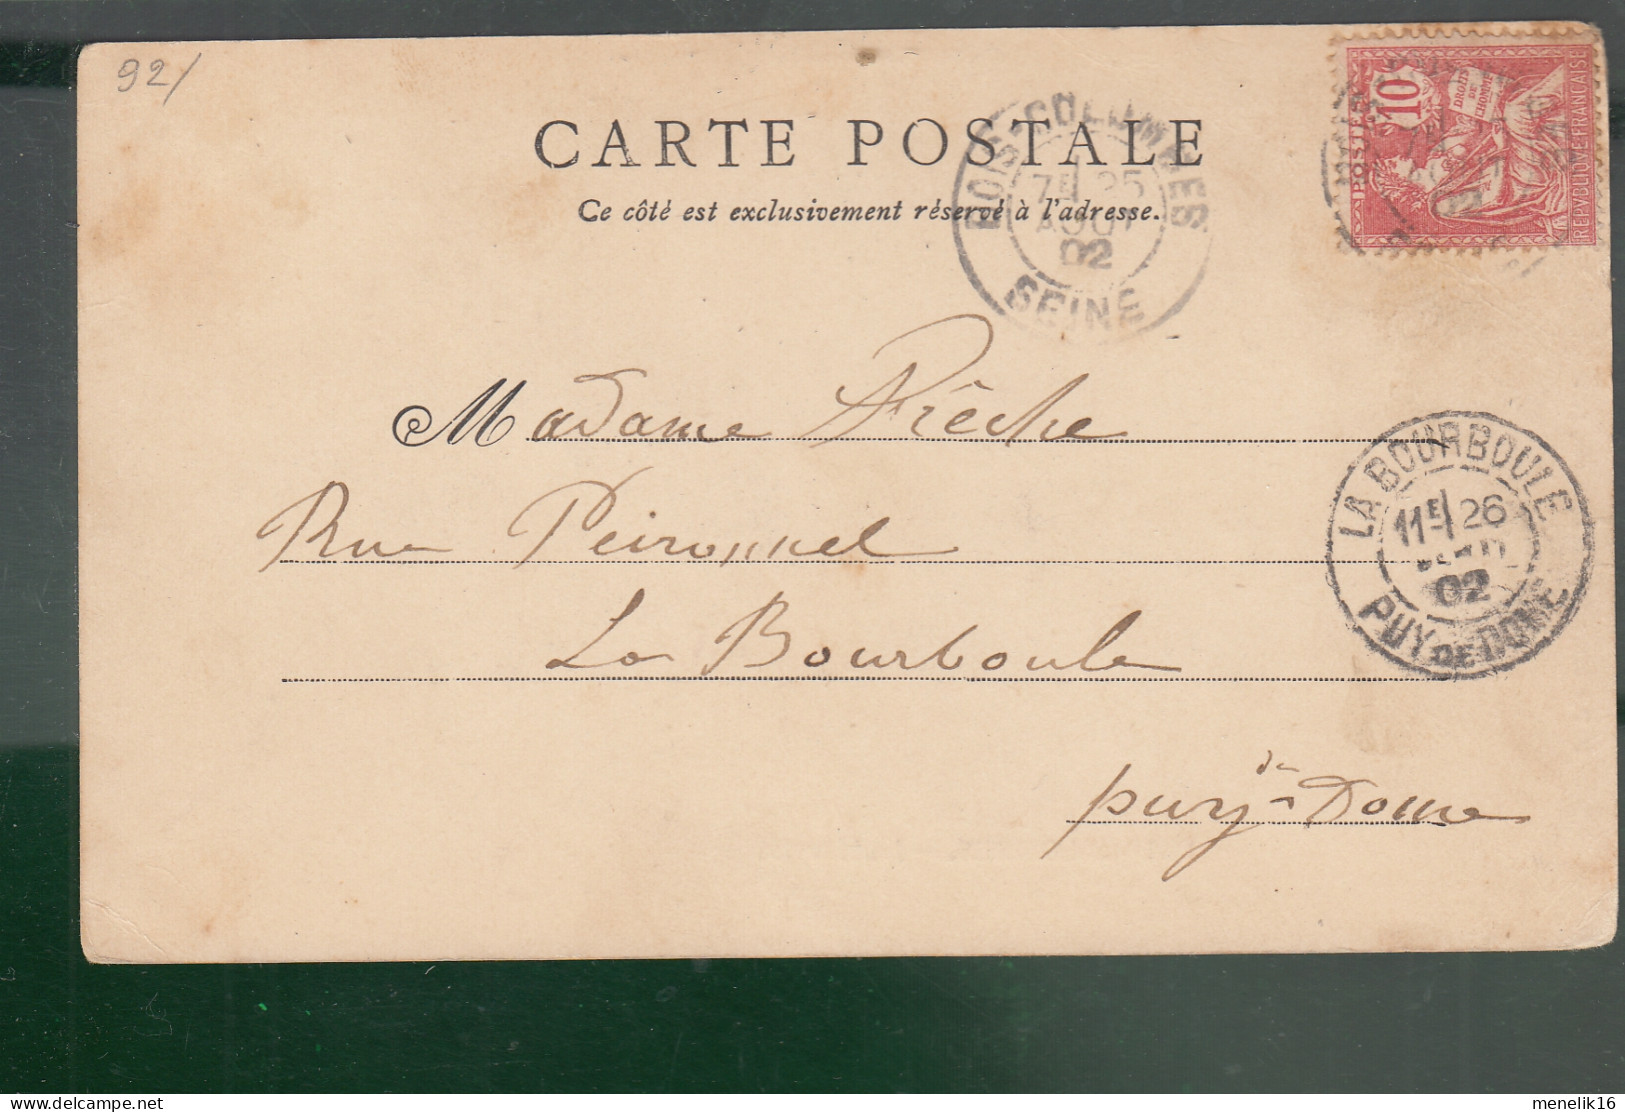 92/
CARTE POSTALE
Ce côté est exclusivement réservé à l'adresse.
BOIS-COLOMBES
7E 25
AOUT
02
SEINE
10
POSTES
DROITS
DE
L'HOMME
REPVBLIQVE FRANCAISE
Madame Frêche
Rue Peironnel
La Bourboule
puy-de-Dome
LA BOURBOULE
11E 26
02
PUY-DE-DOME
menelik16